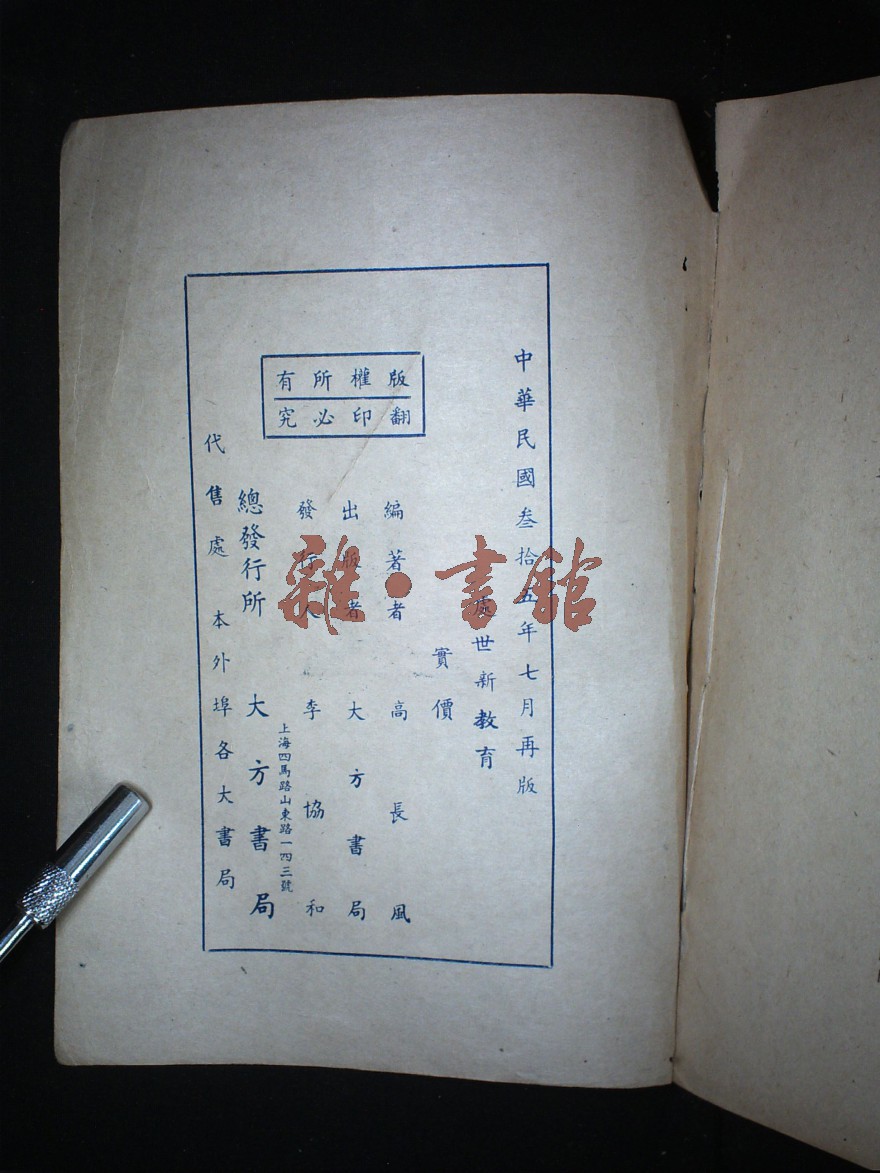 中華民國叁拾五年七月再版
處世新教育
實價
版權所有
翻印必究
編著者 高長風
出版者 大方書局
發行人 李協和
總發行所 大方書局
上海四馬路山東路一四三號
代售處 本外埠各大書局
雜·書館